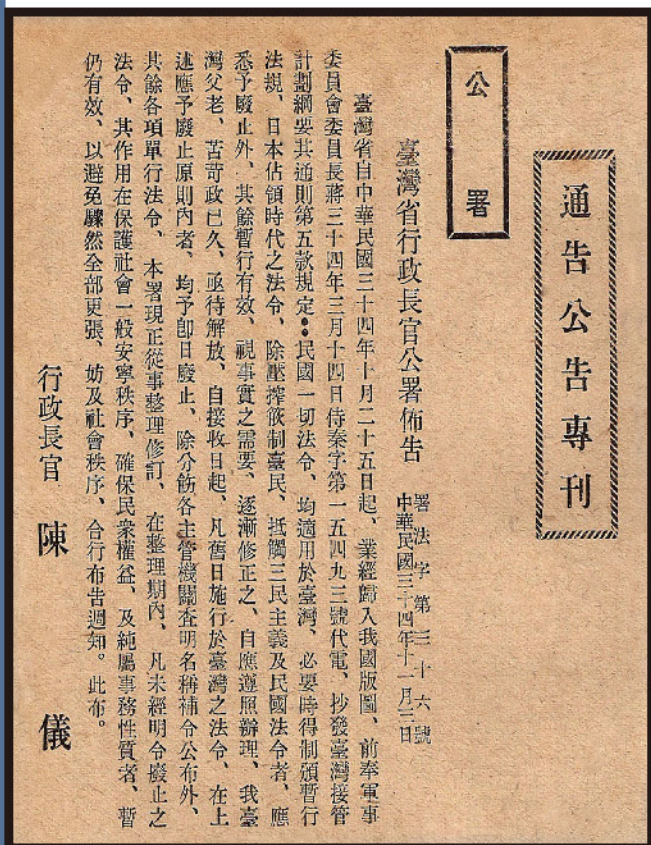 通告公告專刊
公署
臺灣省行政長官公署佈告
署法字第三十六號
中華民國三十四年十一月三日
臺灣省自中華民國三十四年十月二十五日起、業經歸入我國版圖、前奉軍事
委員會委員長蔣三十四年三月十四日侍秦字第一五四九三號代電、抄發臺灣接管
計劃綱要其通則第五款規定：民國一切法令、均適用於臺灣、必要時得制頒暫行
法規、日本佔領時代之法令、除壓搾箝制臺民、抵觸三民主義及民國法令者、應
悉予廢止外、其餘暫行有效、視事實之需要、逐漸修正之、自應遵照辦理、我臺
灣父老、苦苛政已久、亟待解放、自接收日起、凡舊日施行於臺灣之法令、在上
述應予廢止原則內者、均予卽日廢止、除分飭各主管機關查明名稱補令公布外、
其餘各項單行法令、本署現正從事整理修訂、在整理期內、凡未經明令廢止之
法令、其作用在保護社會一般安寧秩序、確保民衆權益、及純屬事務性質者、暫
仍有效、以避免驟然全部更張、妨及社會秩序、合行布告週知。此布。
行政長官 陳 儀